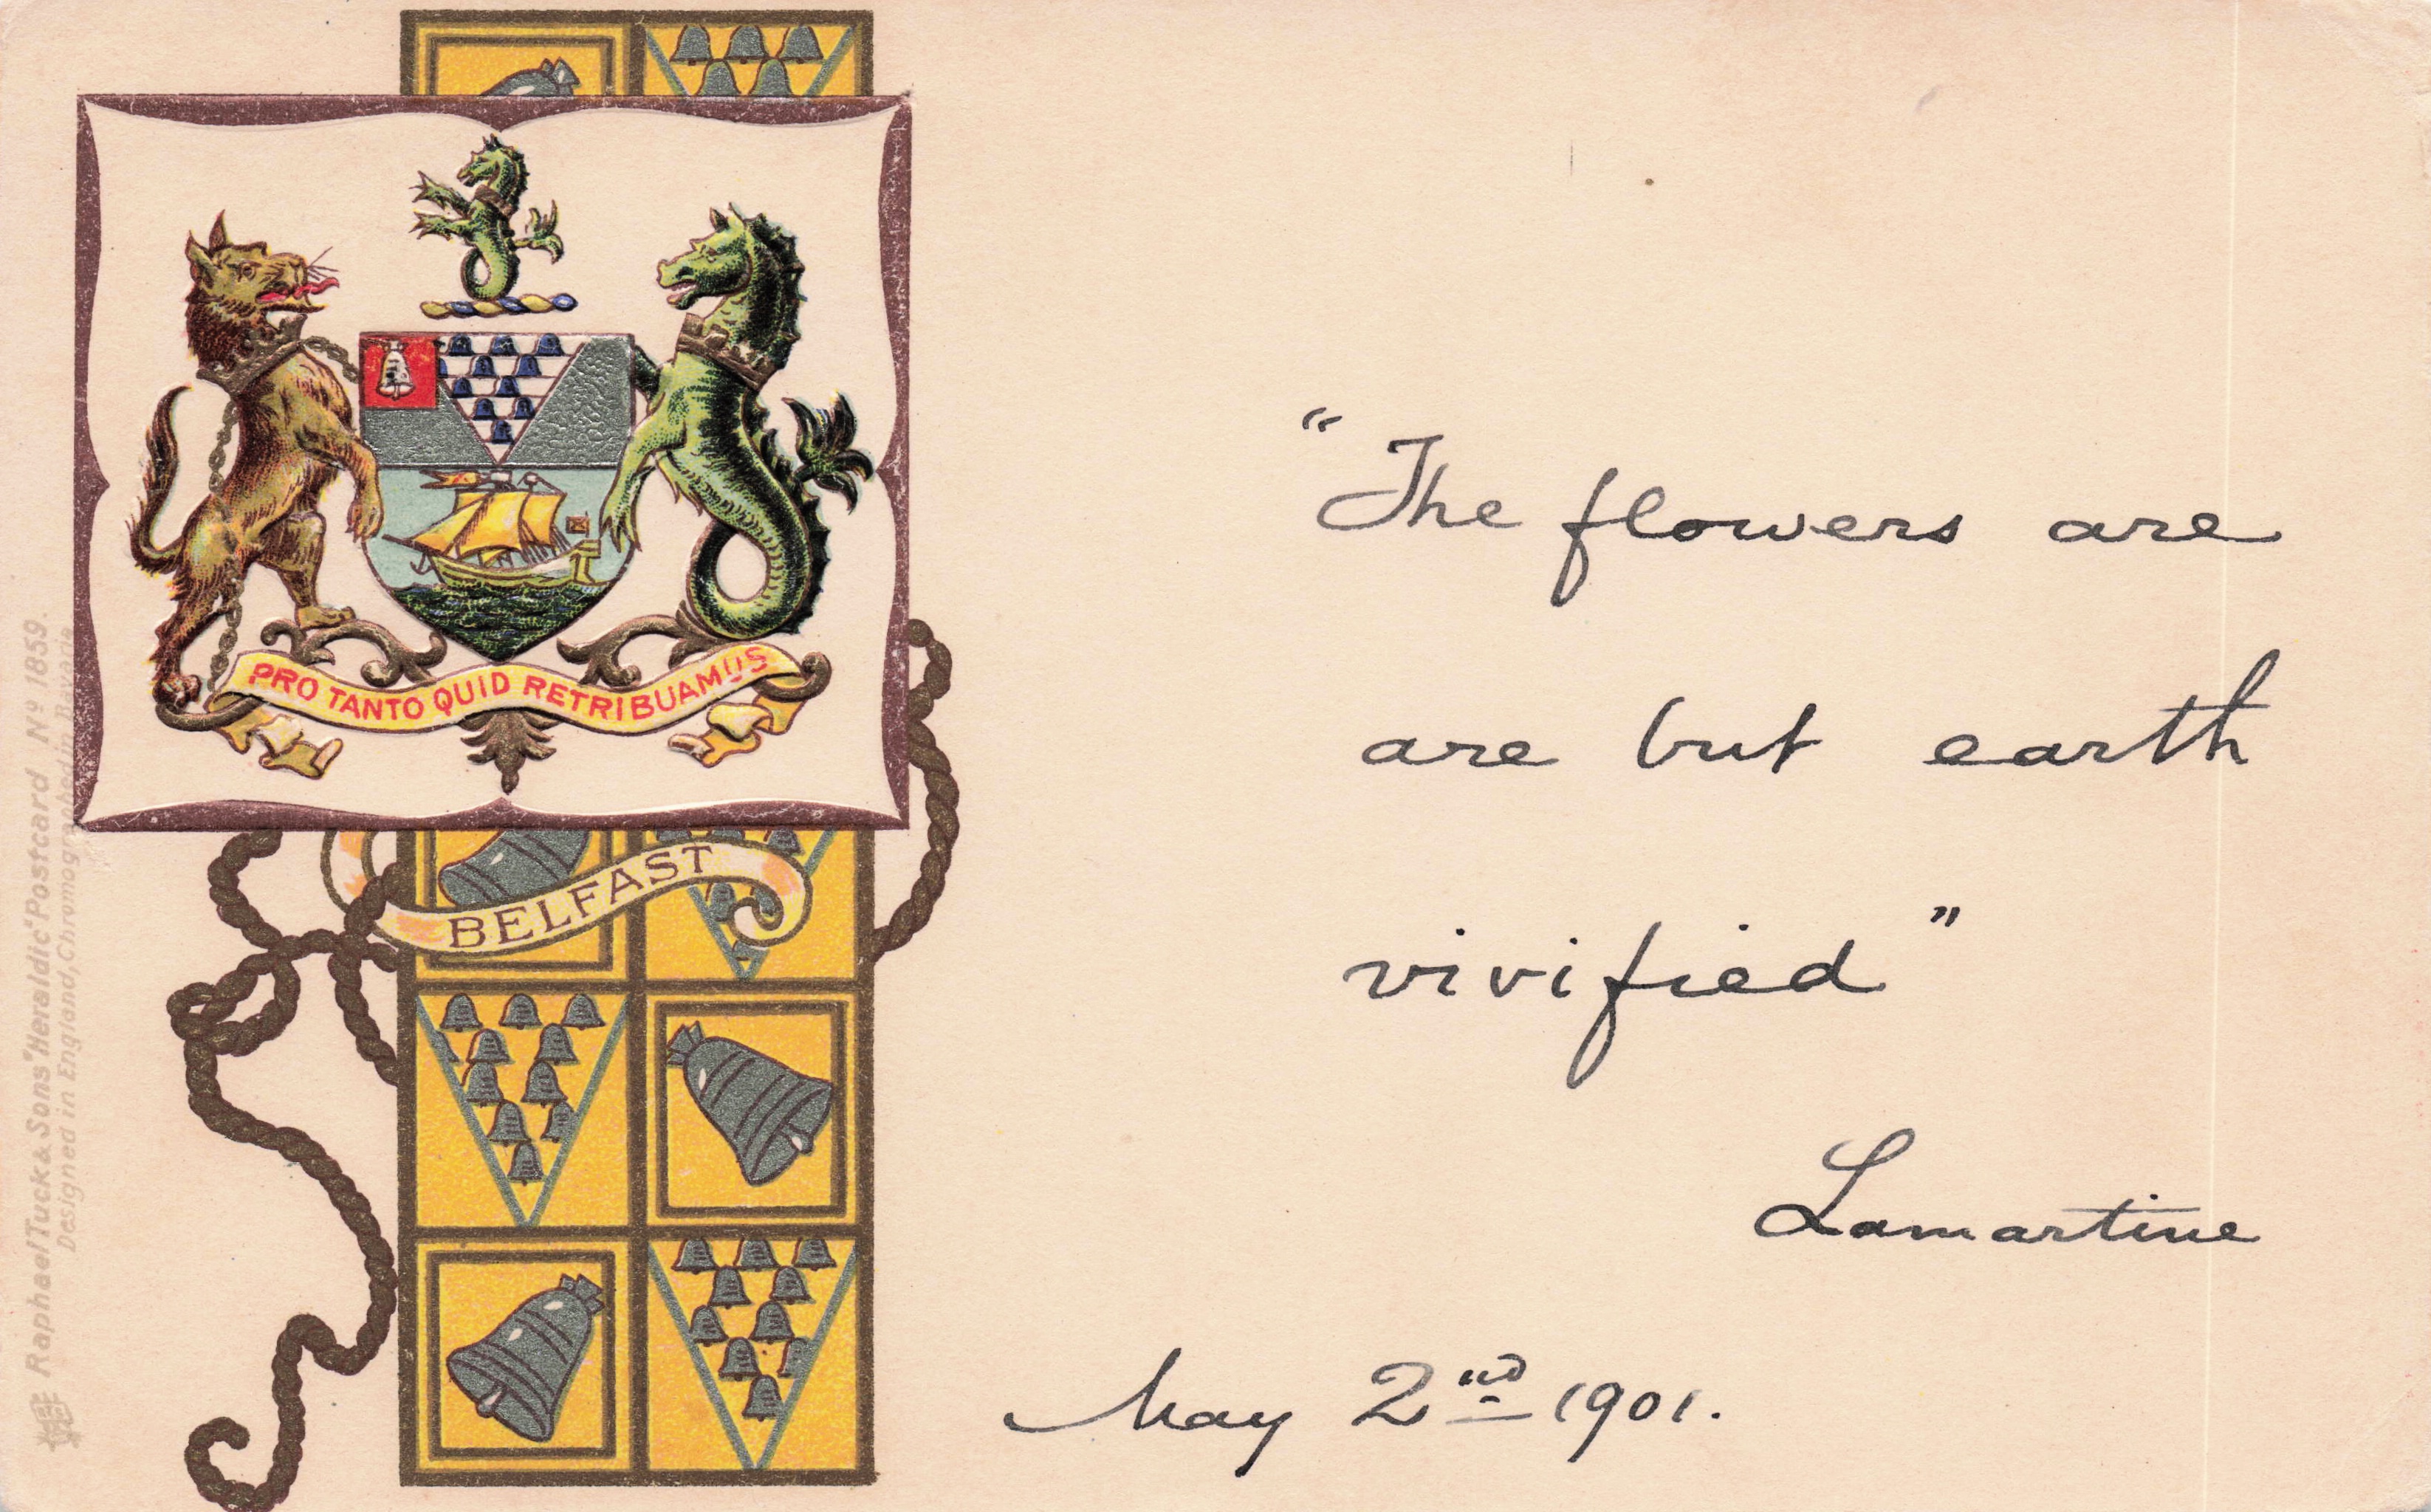 PRO TANTO QUID RETRIBUAMUS
BELFAST
Raphael Tuck & Sons "Heraldic" Postcard Nº 1859.
Designed in England, Chromographed in Bavaria
"The flowers are
are but earth
vivified"
Lamartine
May 2nd 1901.